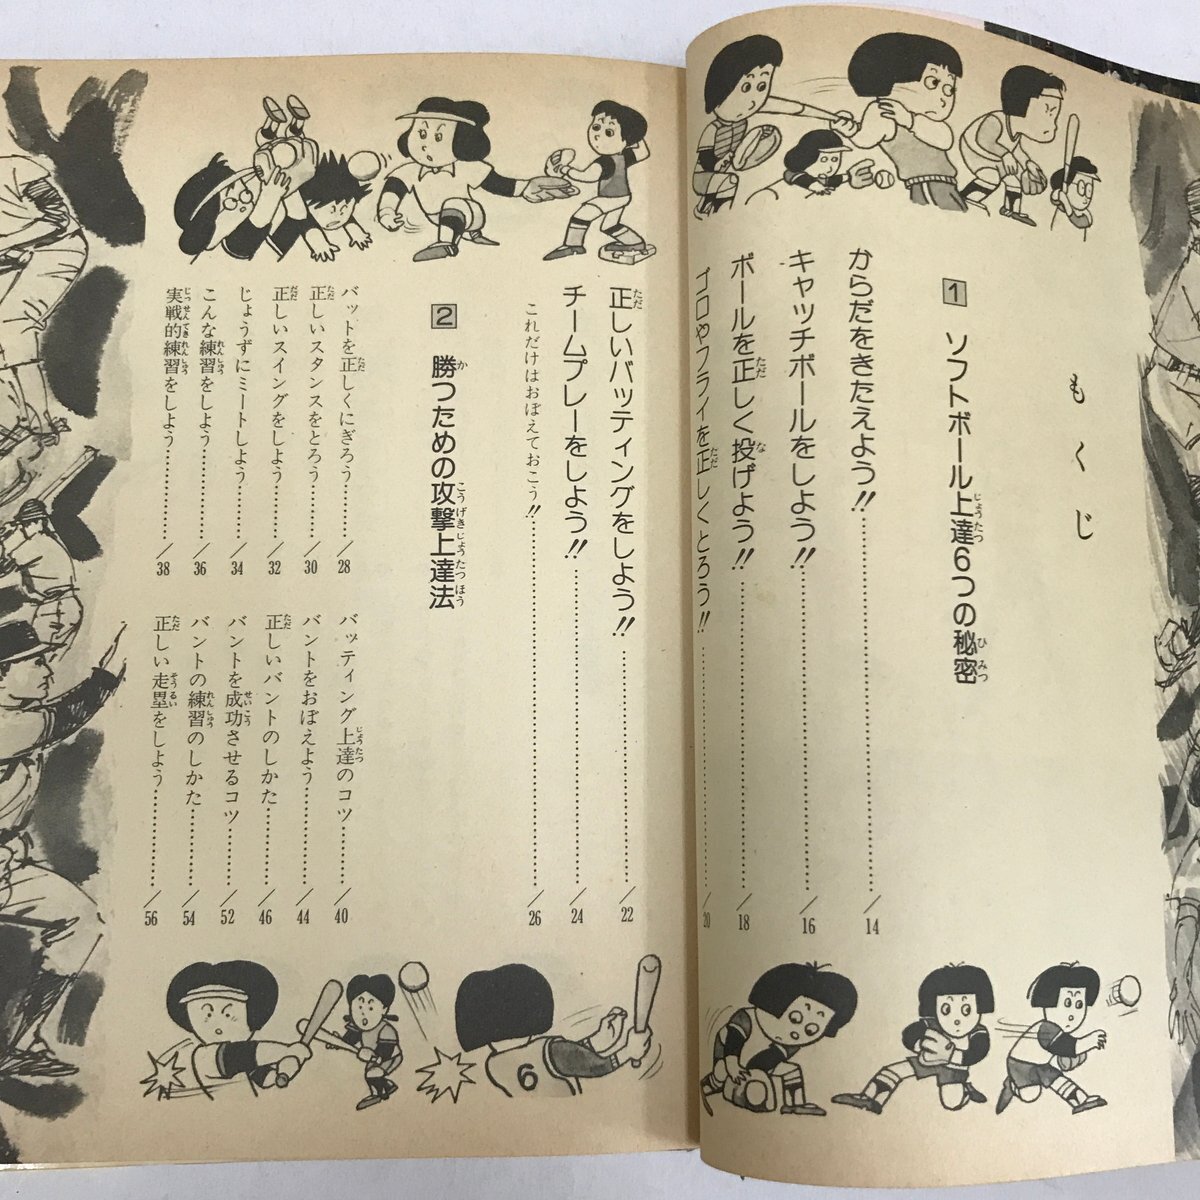 もくじ
1 ソフトボール上達6つの秘密
からだをきたえよう!!……………/14
キャッチボールをしよう!!……………/16
ボールを正しく投げよう!!……………/18
ゴロやフライを正しくとろう!!……………/20
正しいバッティングをしよう!!……………/22
チームプレーをしよう!!……………/24
これだけはおぼえておこう!!……………/26
2 勝つための攻撃上達法
バットを正しくにぎろう……………/28
正しいスタンスをとろう……………/30
正しいスイングをしよう……………/32
じょうずにミートしよう……………/34
こんな練習をしよう……………/36
実戦的練習をしよう……………/38
バッティング上達のコツ……………/40
バントをおぼえよう……………/44
正しいバントのしかた……………/46
バントを成功させるコツ……………/52
バントの練習のしかた……………/54
正しい走塁をしよう……………/56
6